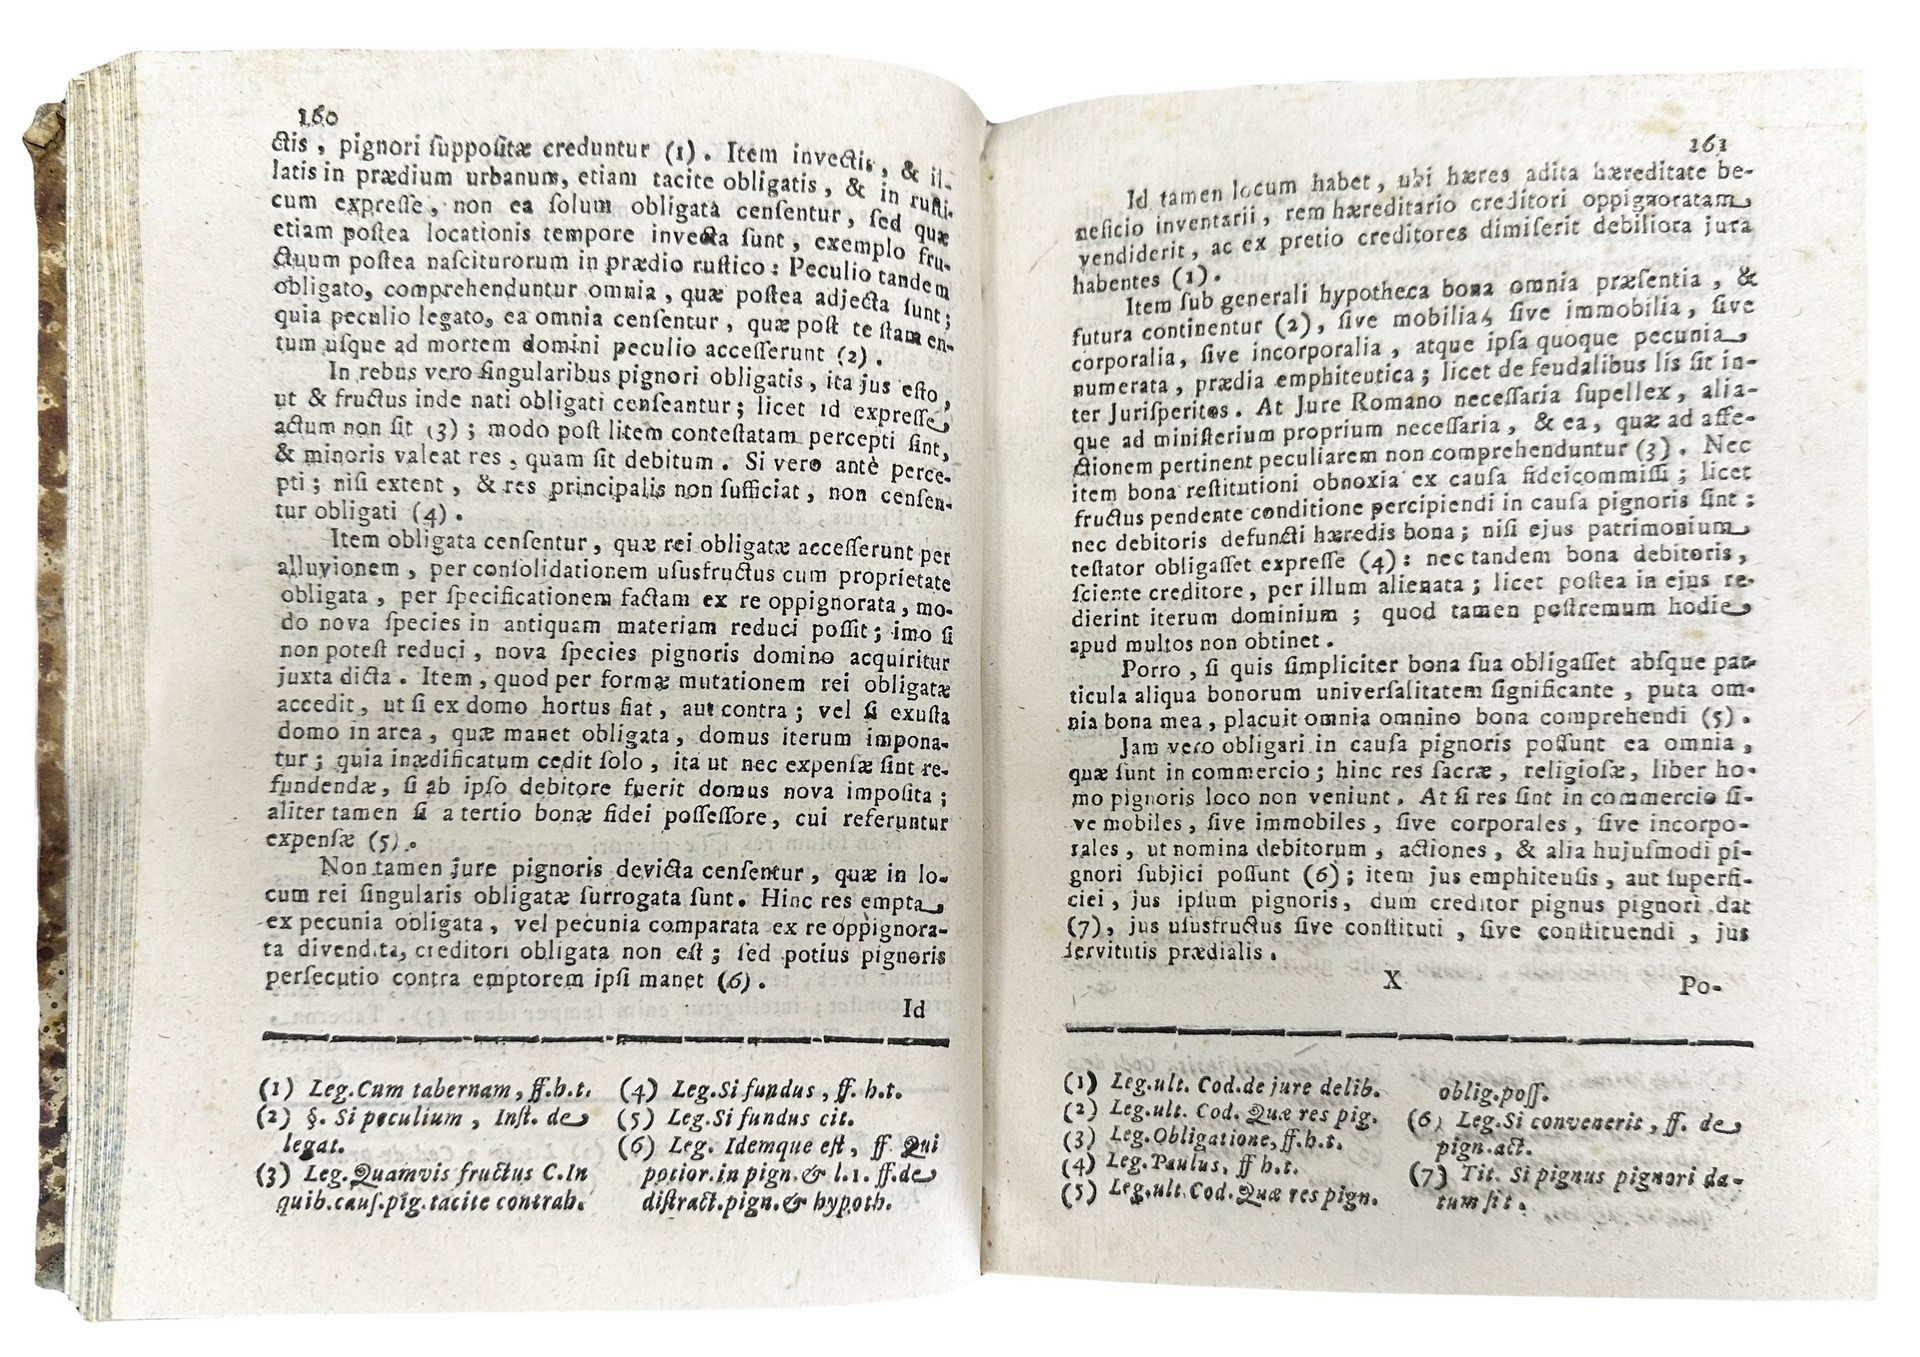 160
ctis, pignori ſuppoſitæ creduntur (1). Item invectis, & il-
latis in prædium urbanum, etiam tacite obligatis, & in ruſti-
cum expreſſe, non ea ſolum obligata cenſentur, ſed quæ
etiam poſtea locationis tempore invecta ſunt, exemplo fru-
ctuum poſtea naſciturorum in prædio ruſtico: Peculio tandem
obligato, comprehenduntur omnia, quæ poſtea adjecta ſunt;
quia peculio legato, ea omnia cenſentur, quæ poſt te ſtamen-
tum uſque ad mortem domini peculio acceſſerunt (2).
In rebus vero ſingularibus pignori obligatis, ita jus eſto,
ut & fructus inde nati obligati cenſeantur; licet id expreſſe
actum non ſit (3); modo poſt litem conteſtatam percepti ſint,
& minoris valeat res, quam ſit debitum. Si vero antè perce-
pti; niſi extent, & res principalis non ſufficiat, non cenſen-
tur obligati (4).
Item obligata cenſentur, quæ rei obligatæ acceſſerunt per
alluvionem, per conſolidationem uſusfructus cum proprietate
obligata, per ſpecificationem factam ex re oppignorata, mo-
do nova ſpecies in antiquam materiam reduci poſſit; imo ſi
non poteſt reduci, nova ſpecies pignoris domino acquiritur
juxta dicta. Item, quod per formæ mutationem rei obligatæ
accedit, ut ſi ex domo hortus fiat, aut contra; vel ſi exuſta
domo in area, quæ manet obligata, domus iterum impona-
tur; quia inædificatum cedit ſolo, ita ut nec expenſæ ſint re-
fundendæ, ſi ab ipſo debitore fuerit domus nova impoſita;
aliter tamen ſi a tertio bonæ fidei poſſeſſore, cui referuntur
expenſæ (5).
Non tamen jure pignoris devicta cenſentur, quæ in lo-
cum rei ſingularis obligatæ ſurrogata ſunt. Hinc res empta
ex pecunia obligata, vel pecunia comparata ex re oppignora-
ta divendita, creditori obligata non eſt; ſed potius pignoris
perſecutio contra emptorem ipſi manet (6).
Id
(1) Leg. Cum tabernam, ff. h. t.
(2) §. Si peculium, Inſt. de
legat.
(3) Leg. Quamvis fructus C. In
quib. cauſ. pig. tacite contrah.
(4) Leg. Si fundus, ff. h. t.
(5) Leg. Si fundus cit.
(6) Leg. Idemque eſt, ff Qui
potior. in pign. & l. 1. ff. de
diſtract. pign. & hypoth.
161
Id tamen locum habet, ubi hæres adita hæreditate be-
neficio inventarii, rem hæreditario creditori oppignoratam
vendiderit, ac ex pretio creditores dimiſerit debiliora jura
habentes (1).
Item ſub generali hypotheca bona omnia præſentia, &
futura continentur (2), ſive mobilia, ſive immobilia, ſive
corporalia, ſive incorporalia, atque ipſa quoque pecunia
numerata, prædia emphiteutica; licet de feudalibus lis ſit in-
ter Juriſperitos. At Jure Romano neceſſaria ſupellex, alia-
que ad miniſterium proprium neceſſaria, & ea, quæ ad affe-
ctionem pertinent peculiarem non comprehenduntur (3). Nec
item bona reſtitutioni obnoxia ex cauſa fideicommiſſi; licet
fructus pendente conditione percipiendi in cauſa pignoris ſint;
nec debitoris defuncti hæredis bona; niſi ejus patrimonium
teſtator obligaſſet expreſſe (4): nec tandem bona debitoris,
ſciente creditore, per illum alienata; licet poſtea in ejus re-
dierint iterum dominium; quod tamen poſtremum hodie
apud multos non obtinet.
Porro, ſi quis ſimpliciter bona ſua obligaſſet abſque par-
ticula aliqua bonorum univerſalitatem ſignificante, puta om-
nia bona mea, placuit omnia omnino bona comprehendi (5).
Jam vero obligari in cauſa pignoris poſſunt ea omnia,
quæ ſunt in commercio; hinc res ſacræ, religioſæ, liber ho-
mo pignoris loco non veniunt. At ſi res ſint in commercio ſi-
ve mobiles, ſive immobiles, ſive corporales, ſive incorpo-
rales, ut nomina debitorum, actiones, & alia hujuſmodi pi-
gnori ſubjici poſſunt (6); item jus emphiteuſis, aut ſuperfi-
ciei, jus ipſum pignoris, dum creditor pignus pignori dat
(7), jus uſusfructus ſive conſtituti, ſive conſtituendi, jus
ſervitutis prædialis.
X
Po-
(1) Leg. ult. Cod. de jure delib.
(2) Leg. ult. Cod. Quæ res pig.
(3) Leg. Obligatione, ff. h. t.
(4) Leg. Paulus, ff h. t.
(5) Leg. ult. Cod. Quæ res pign.
oblig. poſſ.
(6) Leg. Si convenerit, ff. de
pign. act.
(7) Tit. Si pignus pignori da-
tum ſit.